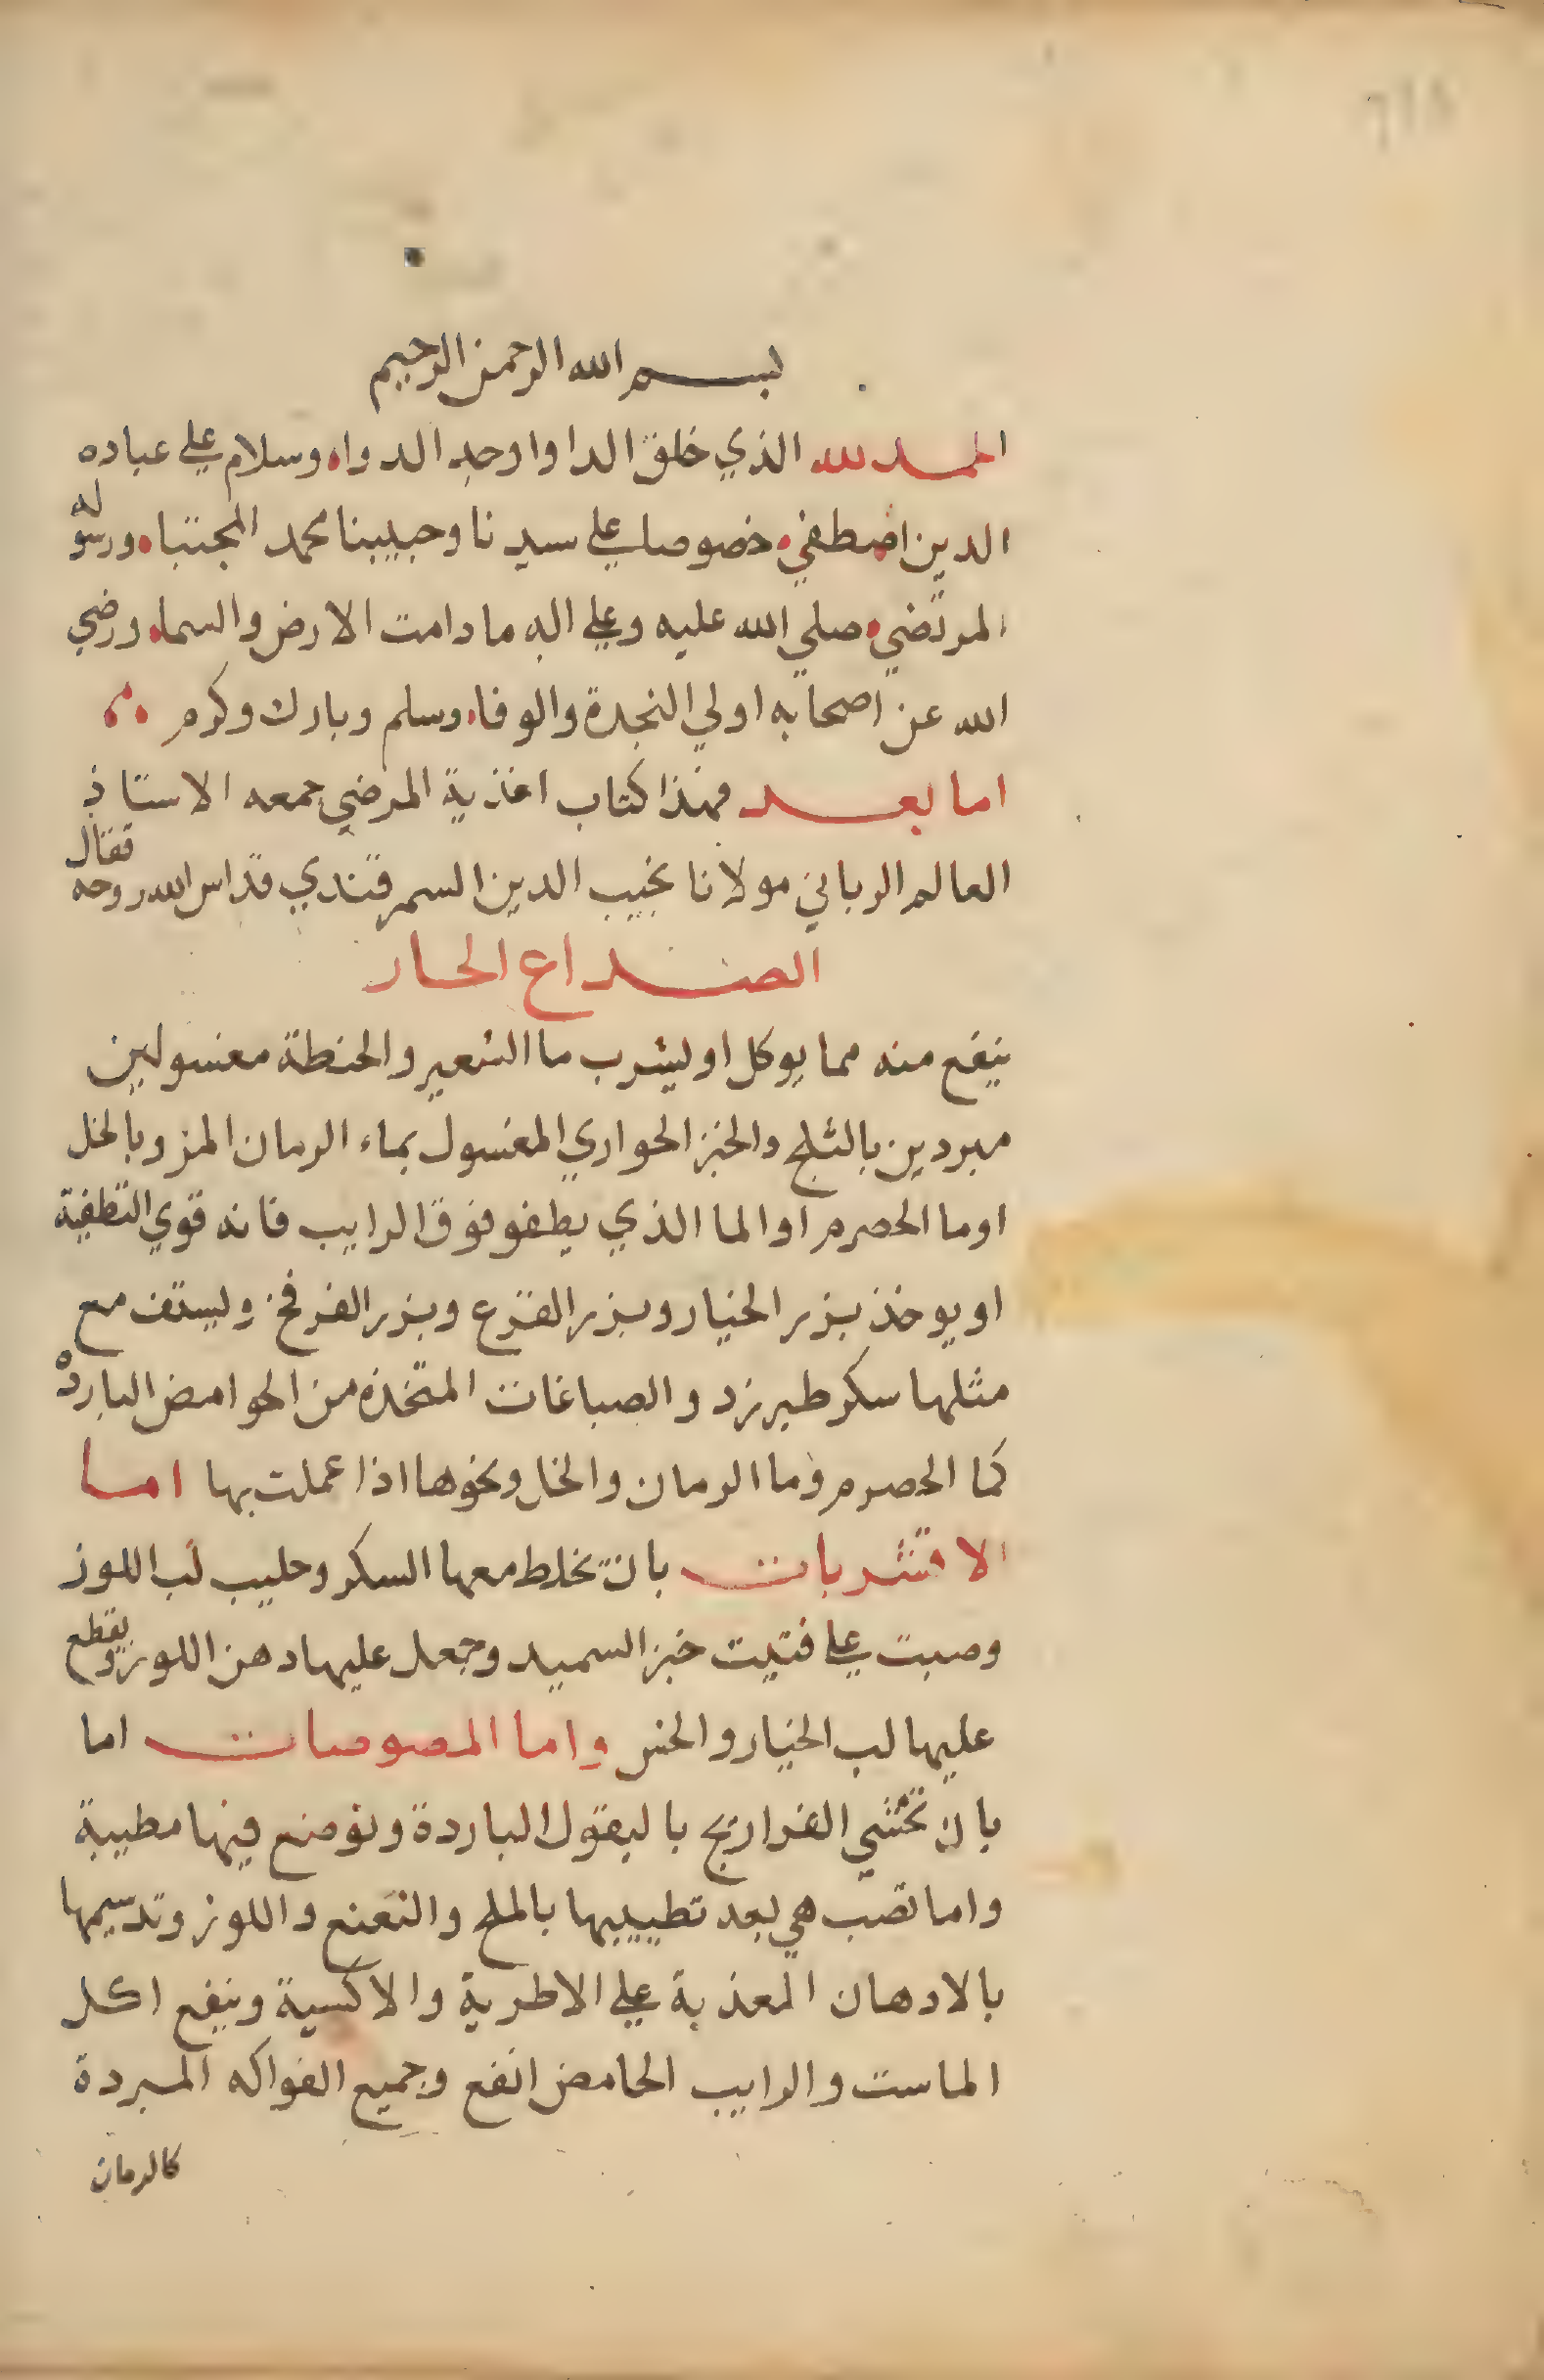 بسم الله الرحمن الرحيم
الحمد لله الذي خلق الدا واوجد الدواه وسلام علي عباده
الدين اصطفي خصوصا علي سيدنا وحبيبنا محمد المجتباه ورسوله
المرتضي صلي الله عليه وعلي اله ما دامت الارض والسماء ورضي
الله عن اصحابه اولي النجدة والوفاء وسلم وبارك وكرم
اما بعد فهذا كتاب اغذية المرضي جمعه الاستاذ
العالم الرباني مولانا نجيب الدين السمرقندي قداس الله روحه فقال
الصداع الحار
ينفع منه مما يوكل او يشرب ما الشعير والحنطة مغسولين
مبردين بالثلج والخبز الحواري المغسول بماء الرمان المز وبالخل
او ما الحصرم او الما الذي يطفو فوق الرايب فانه قوي التطفية
او يوخذ بزر الخيار وبزر القرع وبزر الفرفخ ويستف مع
مثلها سكر طبرزد والصباغات المتخذه من الحوامض الباردة
كما الحصرم وما الرمان والخل ونحوها اذا عملت بها اما
الا بان تخلط معها السكر وحليب لب اللوز
وصبت علي فتيت خبز السميد وجعل عليها دهن اللوز ويقطع
عليها لب الخيار والخس واما المصوصات اما
بان تحشي الفراريج بالبقول الباردة وتوضع فيها مطيبة
واما تصب هي بعد تطييبها بالملح والنعنع واللوز وتدسيمها
بالادهان المعذبة علي الاطرية والاكسية وينفع اكل
الماست والرايب الحامض انفع وجميع الفواكه المبردة
كالرمان